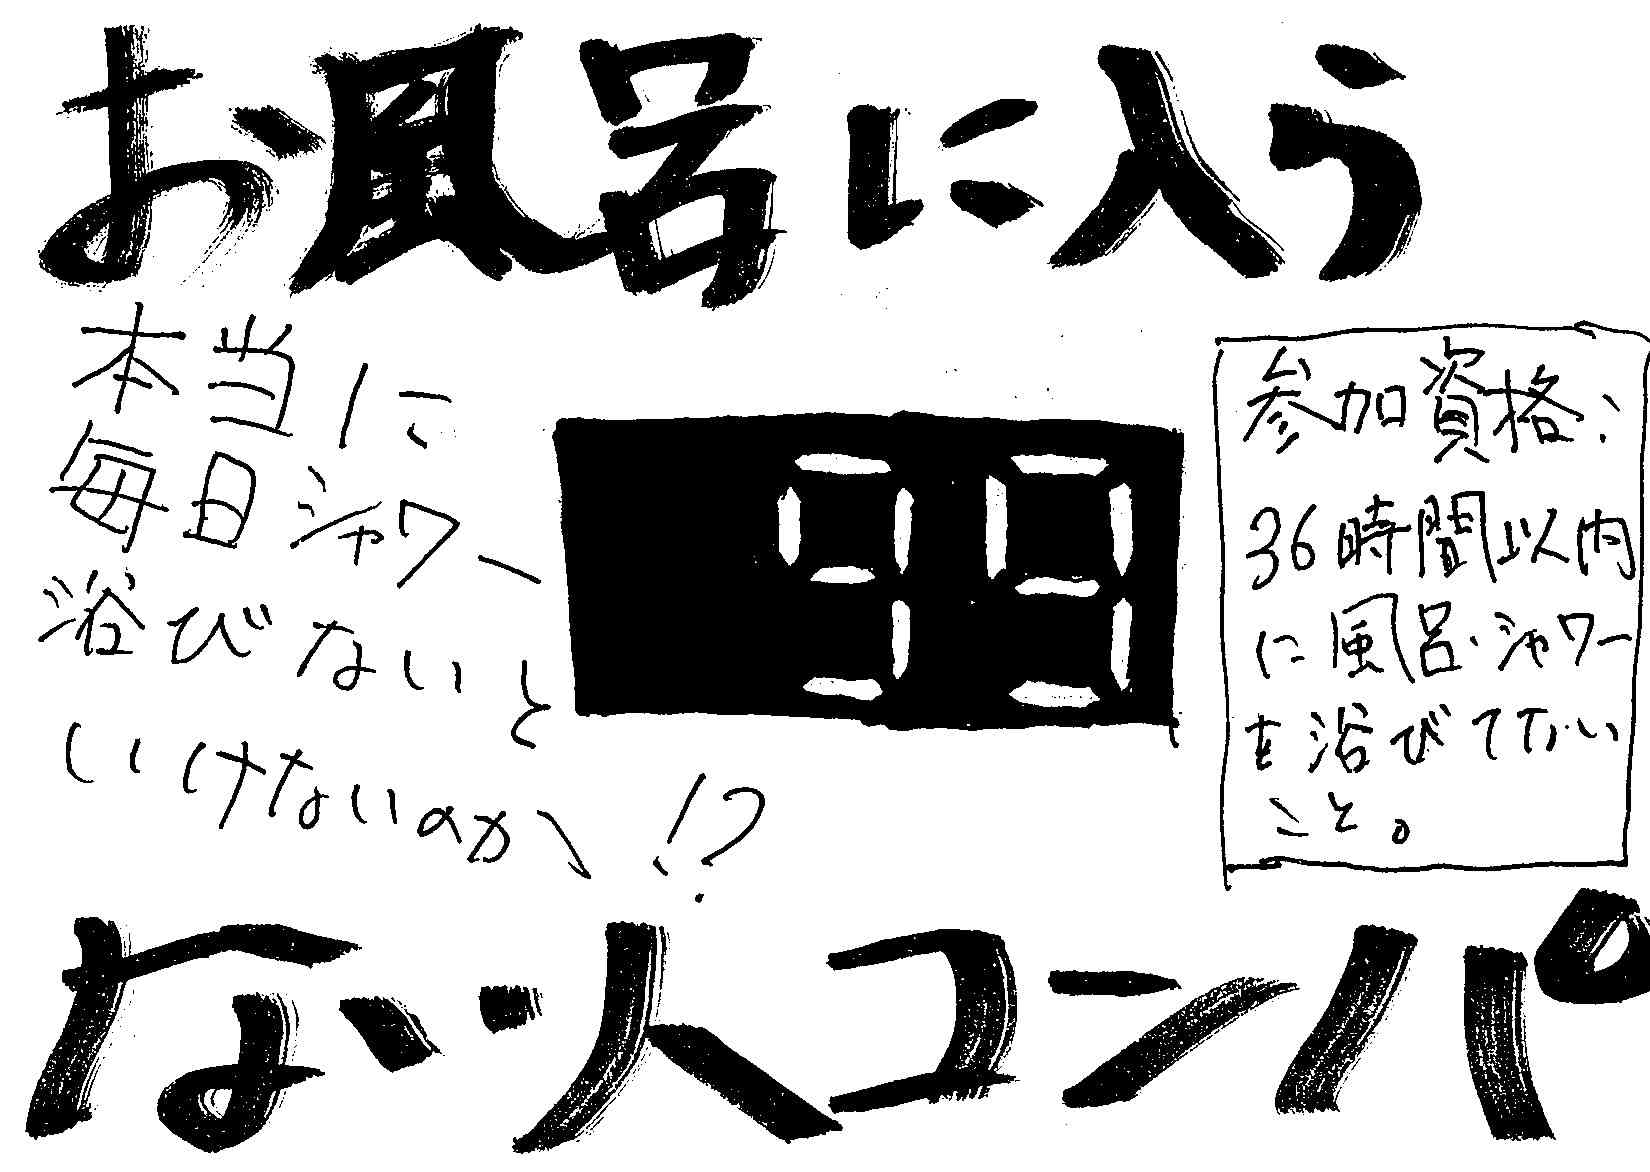 お風呂に入う
本当に
毎日シャワー
浴びないと
いけないのか、!?
99
参加資格:
36時間以内
に風呂・シャワー
を浴びてない
こと。
ない人コンパ